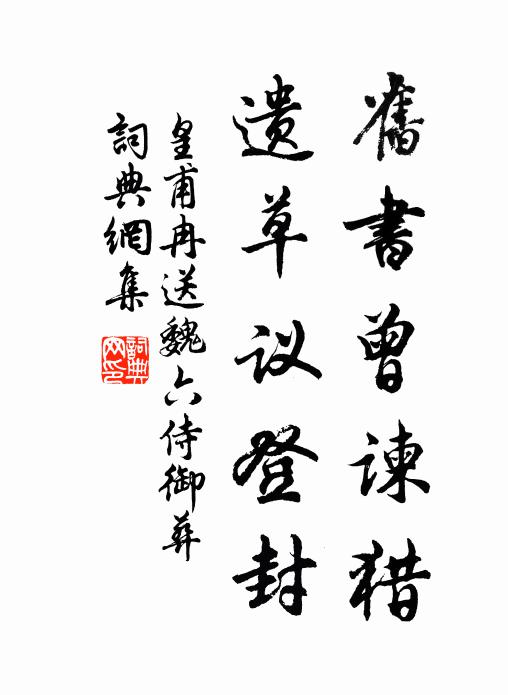 舊書曾諫猎
遺草议登封
皇甫冉送魏六侍御葬
詞典網集
詞典網印